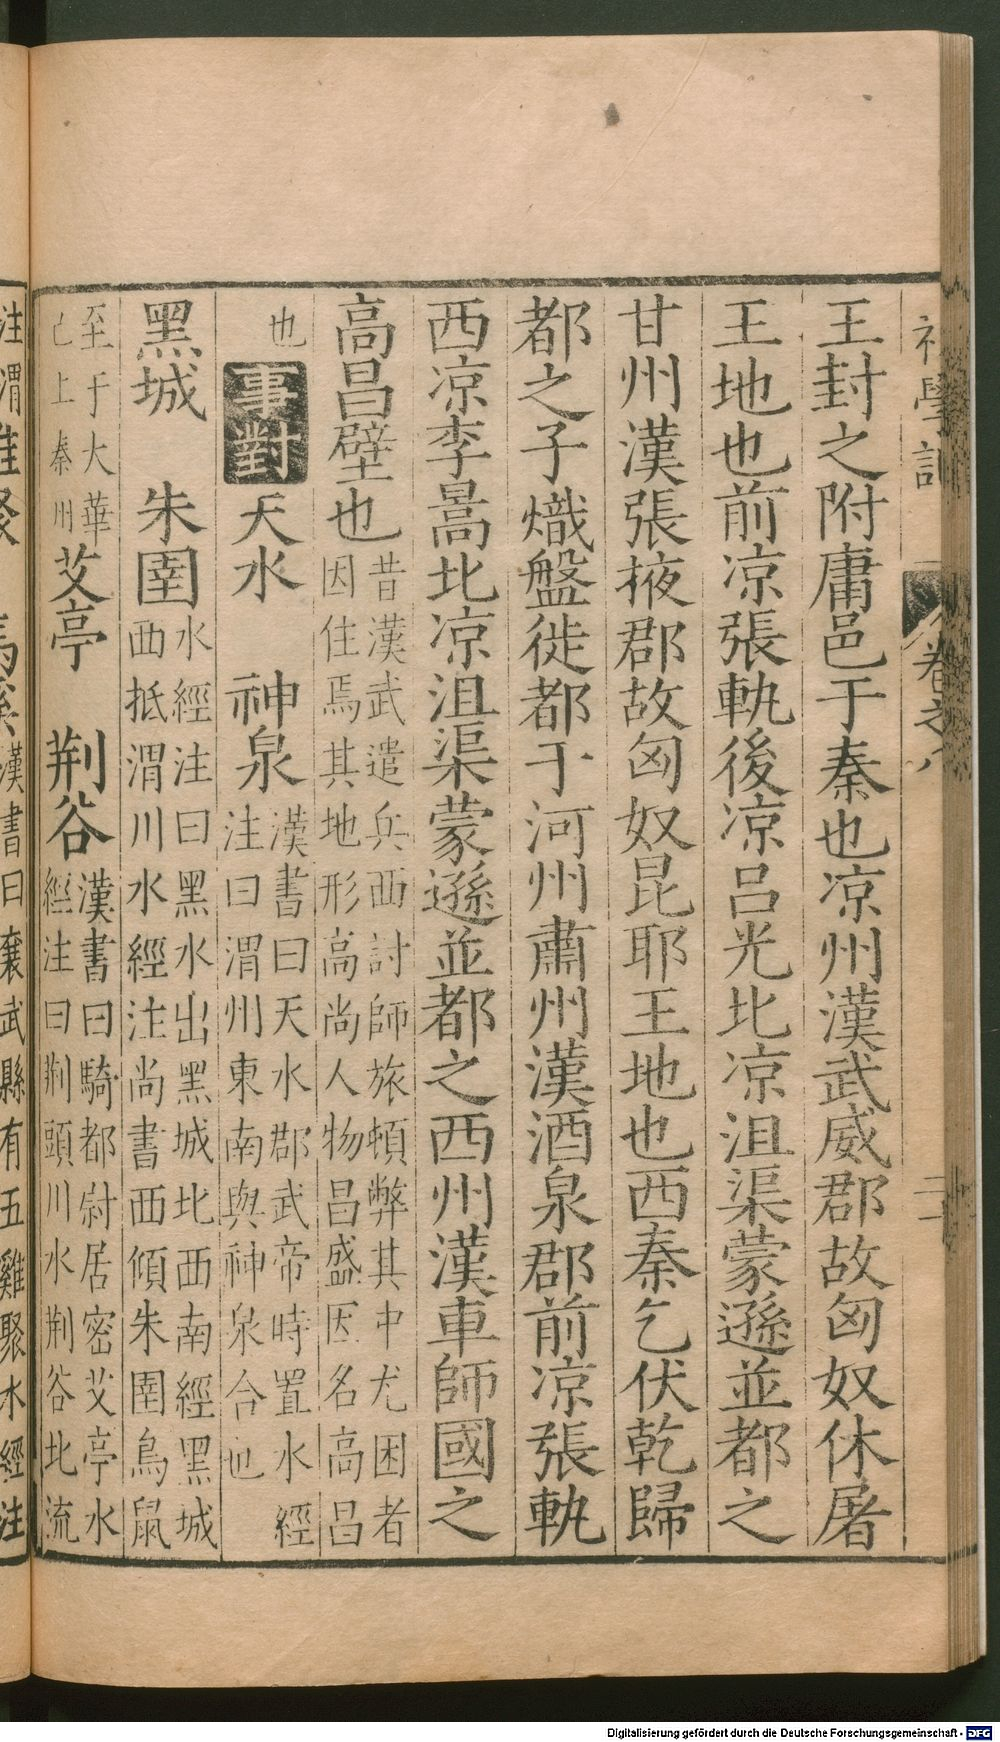 王封之附庸邑于秦也凉州漢武威郡故匈奴休屠
王地也前凉張軌後凉呂光北凉沮渠蒙遜並都之
甘州漢張掖郡故匈奴昆耶王地也西秦乞伏乾歸
都之子熾盤徙都于河州肅州漢酒泉郡前凉張軌
西凉李暠北凉沮渠蒙遜並都之西州漢車師國之
高昌壁也昔漢武遣兵西討師旅頓弊其中尤困者
因住焉其地形高尚人物昌盛因名高昌
也
事對
天水 神泉漢書曰天水郡武帝時置水經
注曰渭州東南與神泉合也
黑城 朱圉水經注曰黑水出黑城北西南經黑城
西抵渭川水經注尚書西傾朱圉鳥鼠
至于大華
已上秦川
艾亭 荆谷漢書曰騎都尉居密艾亭水
經注曰荆頭川水荆谷北流
注渭雞聚
漢書曰襄武縣有五雞聚水經注
卷之八
二十
Digitalisierung gefördert durch die Deutsche Forschungsgemeinschaft - DFG